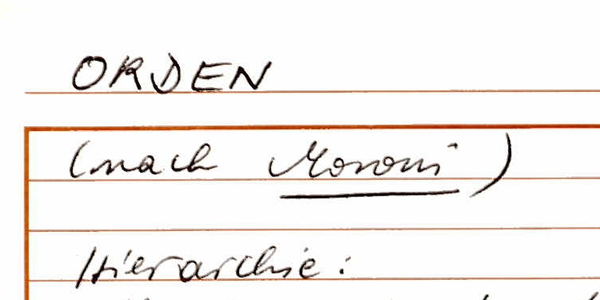 ORDEN
(nach Moroni)
Hierarchie: